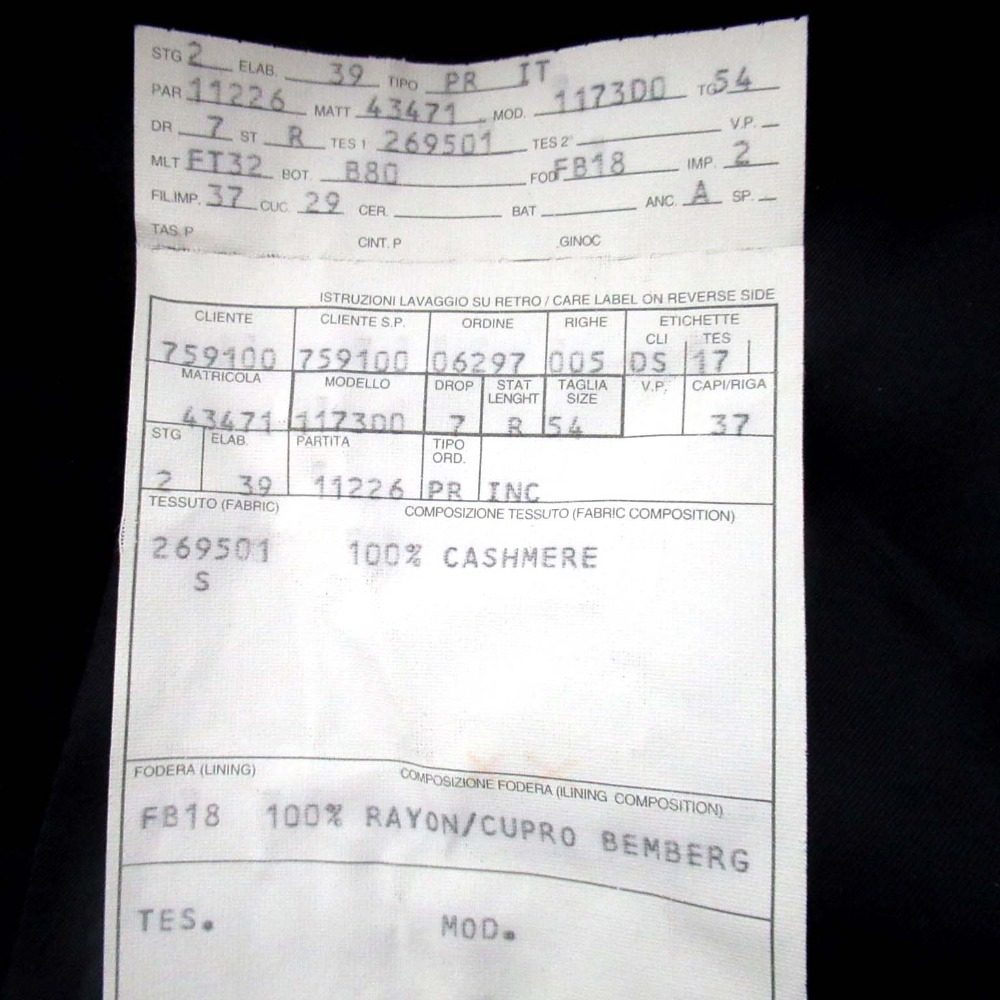 STG 2 ELAB. 39 TIPO PR IT
PAR 11226 MATT 43471 MOD. 117300 TG 54
DR 7 ST R TES 1 269501 TES 2 V.P.
MLT FT32 BOT. B80 FOD FB18 IMP. 2
FIL.IMP. 37 CUC. 29 CER. BAT ANC. A SP.
TAS. P CINT. P GINOC
ISTRUZIONI LAVAGGIO SU RETRO / CARE LABEL ON REVERSE SIDE
CLIENTE CLIENTE S.P. ORDINE RIGHE ETICHETTE
CLI TES
759100 759100 06297 005 DS 17
MATRICOLA MODELLO DROP STAT LENGHT TAGLIA SIZE V.P. CAPI/RIGA
43471 117300 7 R 54 37
STG ELAB. PARTITA TIPO ORD.
2 39 11226 PR INC
TESSUTO (FABRIC) COMPOSIZIONE TESSUTO (FABRIC COMPOSITION)
269501 100% CASHMERE
S
FODERA (LINING) COMPOSIZIONE FODERA (ILINING COMPOSITION)
FB18 100% RAYON/CUPRO BEMBERG
TES. MOD.